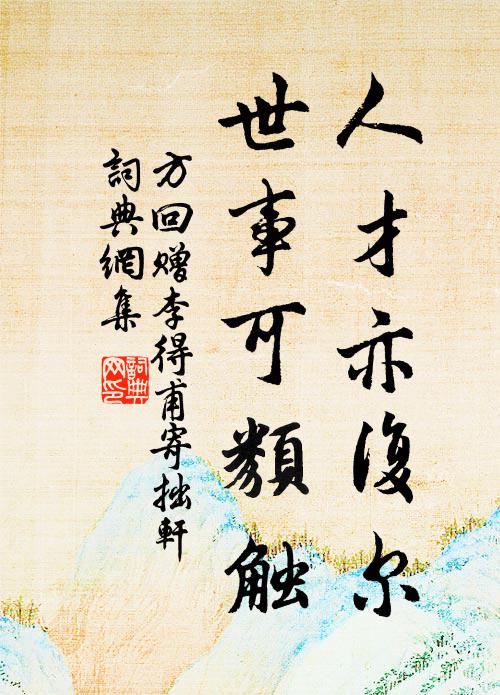 人才亦復尔
世事可類触
方回贈李得甫寄拙軒
詞典網集
詞典網印